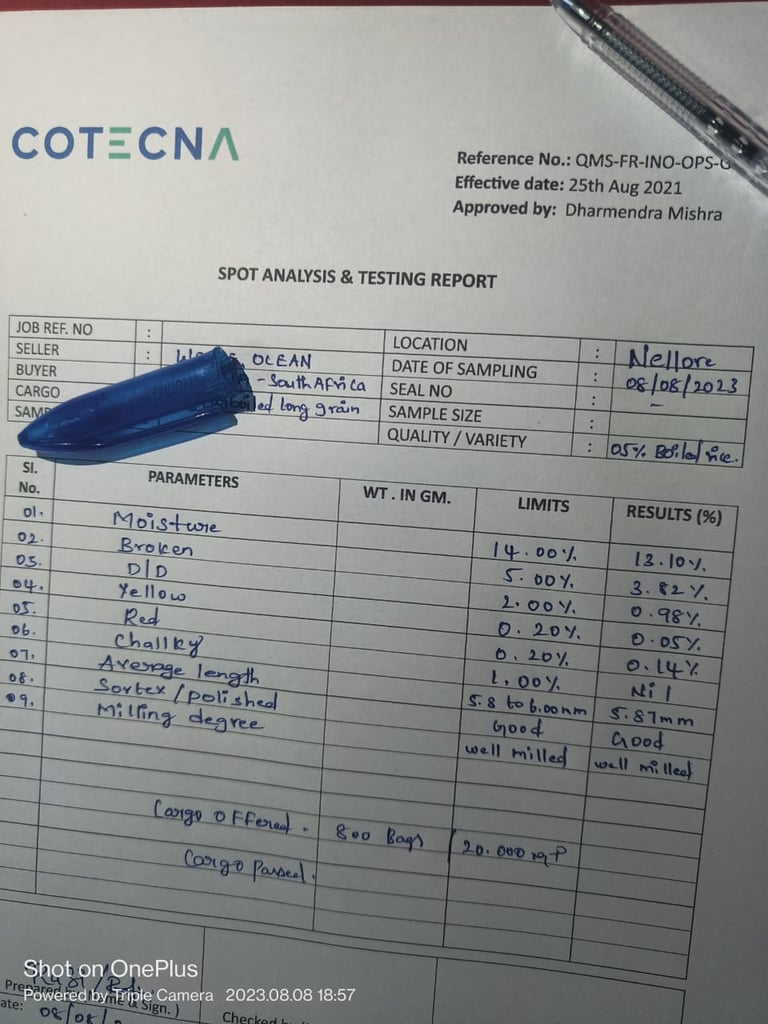 COTECNA
Reference No.: QMS-FR-INO-OPS-
Effective date: 25th Aug 2021
Approved by: Dharmendra Mishra
SPOT ANALYSIS & TESTING REPORT
JOB REF. NO :
SELLER : OCEAN
BUYER - South AFrica
CARGO long grain
SAM
LOCATION : Nellore
DATE OF SAMPLING : 08/08/2023
SEAL NO : -
SAMPLE SIZE :
QUALITY / VARIETY : 05% Boiled rice.
Sl. No. PARAMETERS WT. IN GM. LIMITS RESULTS (%)
01. Moisture 14.00% 13.10%
02. Broken 5.00% 3.82%
03. D/D 2.00% 0.98%
04. Yellow 0.20% 0.05%
05. Red 0.20% 0.14%
06. Challky 1.00% Nil
07. Average length 5.8 to 6.00mm 5.87mm
08. Sortex/polished Good Good
09. Milling degree well milled well milled
Cargo offered. 800 Bags / 20.000
Cargo Passed.
Shot on OnePlus
Powered by Triple Camera 2023.08.08 18:57
Prepared & Sign. )
ate: 08/08/
Checked